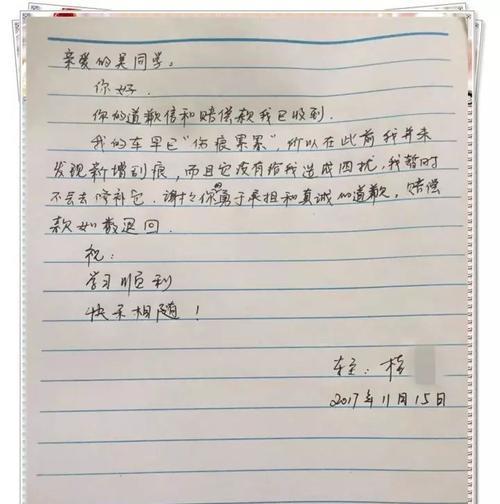 亲爱的吴同学。
你好.
你的道歉信和赔偿款我已收到.
我的车早已“伤痕累累”,所以在此前我并未
发现新增刮痕,而且它没有给我造成困扰,我暂时
不会去修补它. 谢谢你勇于承担和真诚的道歉,赔偿
款如数退回.
祝:
学习顺利
快乐相随!
车主:桂
2017年11月15日